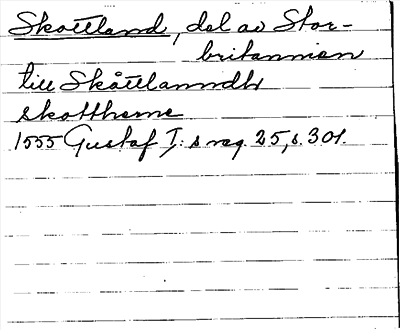 Skottland, del av Stor-
britannien
till Skåttlanndh
skottherne
1555 Gustaf I:s reg. 25, s. 301.